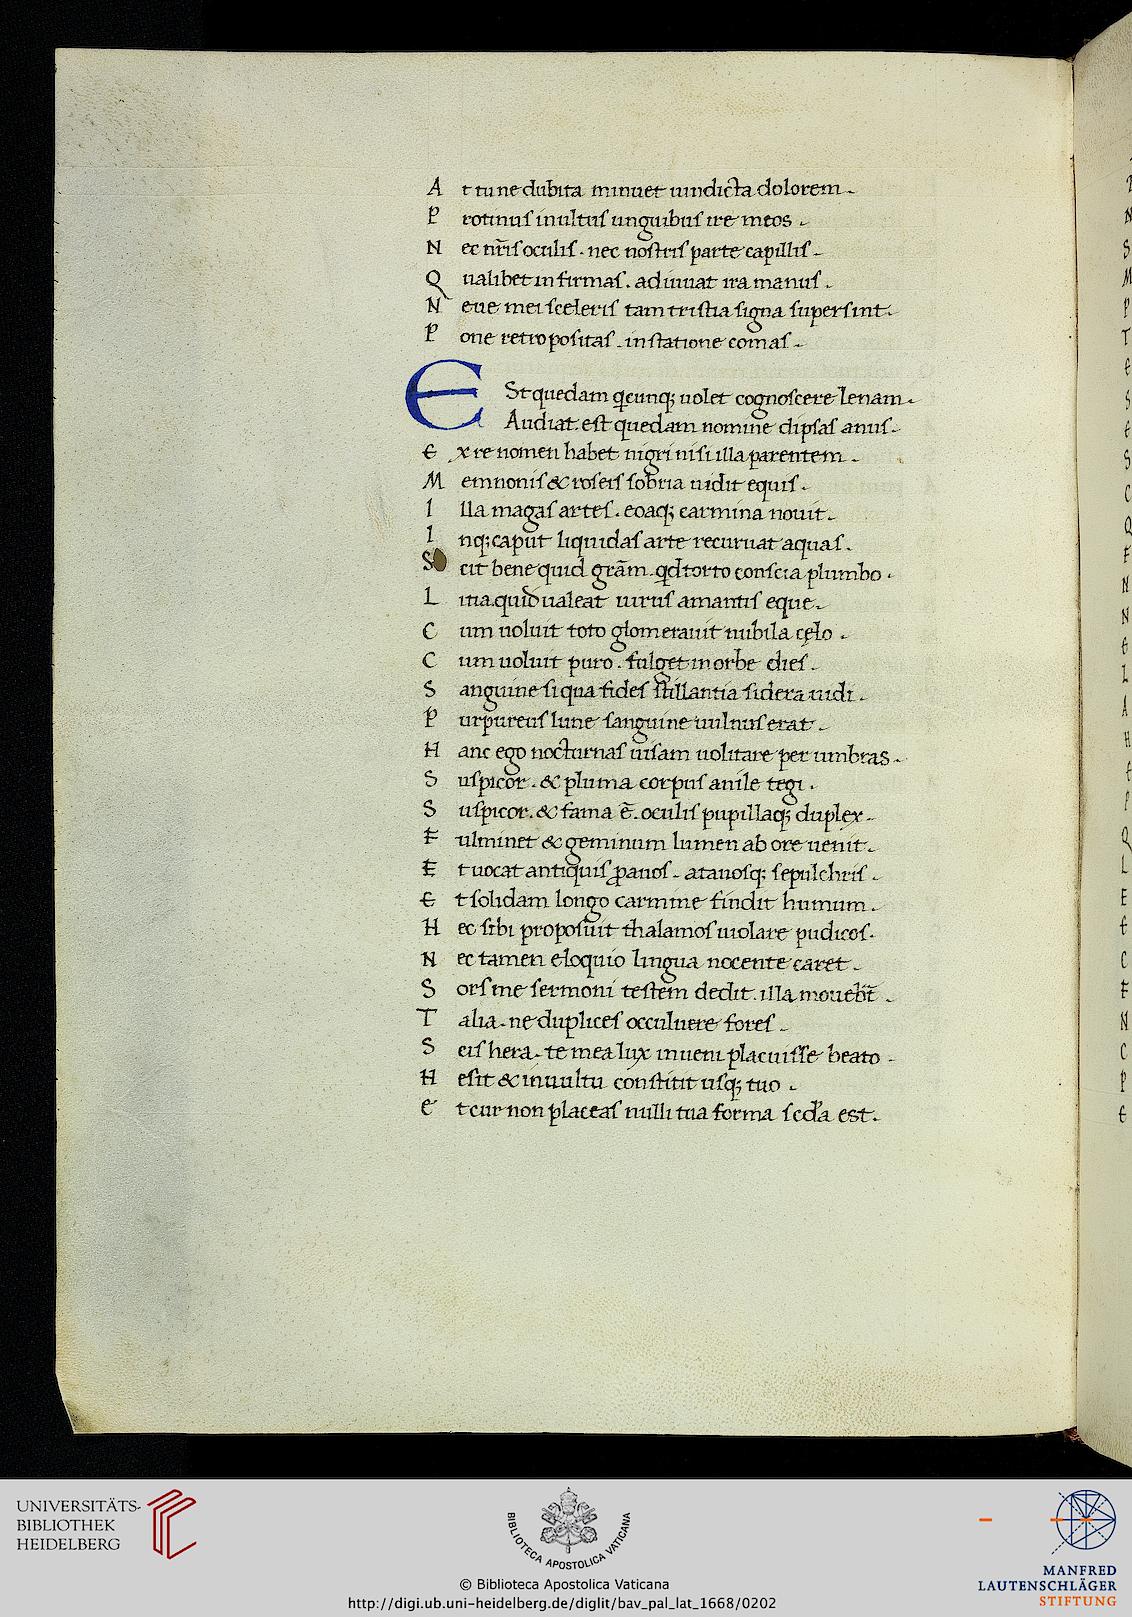 A t tu ne dubita minuet uindicta dolorem .
P rotinus inultus unguibus ire meos .
N ec nr̄is oculis . nec nostris parte capillis .
Q ualibet infirmas . adiuuat ira manus .
N eue mei sceleris tam tristia signa supersint .
P one retro positas . in statione comas .
ESt quedam qͥcunq; uolet cognoscere lenam .
Audiat . est quedam nomine dipsas anus .
E x re nomen habet nigri nisi illa parentem .
M emnonis & roseis sobria uidit equis .
I lla magas artes . eoaq; carmina nouit .
I nq; caput liquidas arte recuruat aquas .
S cit bene quid grām . qd torto conscia plumbo .
L itia . quid ualeat uirus amantis eque .
C um uoluit toto glomerauit nubila cęlo .
C um uoluit puro . fulget in orbe dies .
S anguine siqua fides stillantia sidera uidi .
P urpureus lune sanguine uulnus erat .
H anc ego nocturnas uisam uolitare per umbras .
S uspicor . & pluma corpus anile tegi .
S uspicor . & fama ē . oculis pupillaq; duplex .
F ulminet & geminum lumen ab ore uenit .
E t uocat antiquis ꝓauos . atauosq; sepulchris .
E t solidam longo carmine findit humum .
H ec sibi proposuit thalamos uiolare pudicos .
N ec tamen eloquio lingua nocente caret .
S ors me sermoni testem dedit . illa mouebt̄ .
T alia . ne duplices occuluere fores .
S cis hera . te mea lux inueni placuisse beato .
H esit & in uultu constitit usq; tuo .
E t cur non placeas nulli tua forma scd̓a est .
UNIVERSITÄTS-
BIBLIOTHEK
HEIDELBERG
BIBLIOTECA APOSTOLICA VATICANA
MANFRED
LAUTENSCHLÄGER
STIFTUNG
© Biblioteca Apostolica Vaticana
http://digi.ub.uni-heidelberg.de/diglit/bav_pal_lat_1668/0202